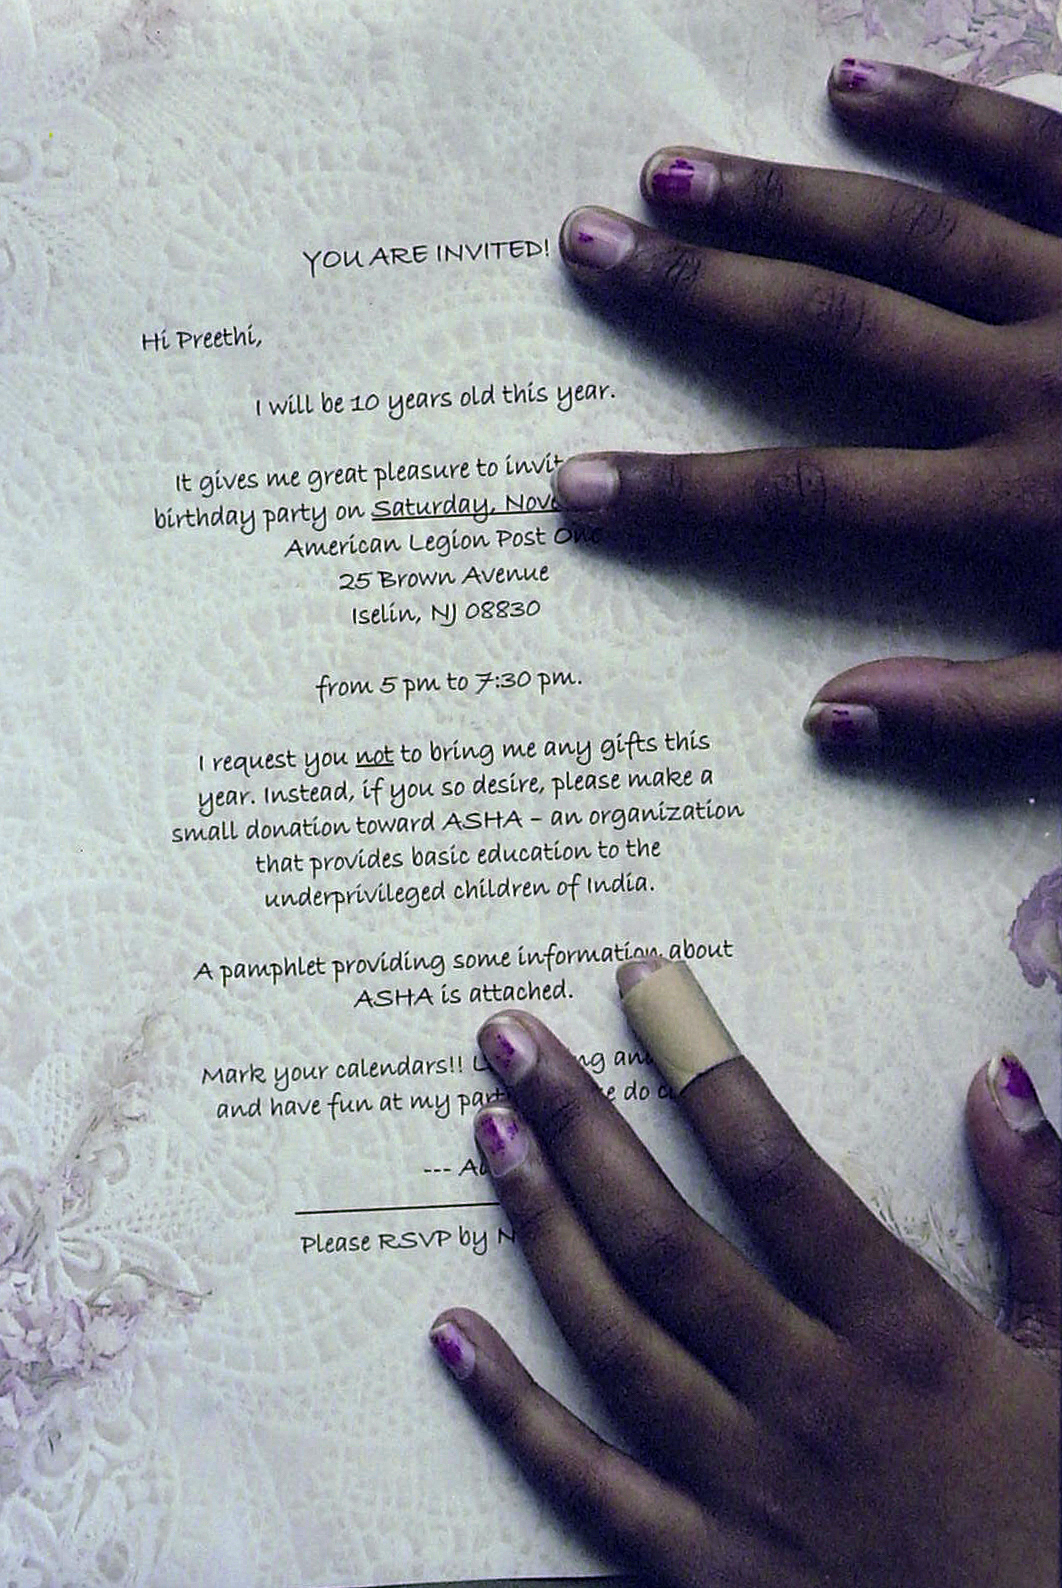 YOU ARE INVITED!
Hi Preethi,
I will be 10 years old this year.
It gives me great pleasure to
birthday party on Saturday,
American Legion Post One
25 Brown Avenue
Iselin, NJ 08830
from 5 pm to 7:30 pm.
I request you not to bring me any gifts this
year. Instead, if you so desire, please make a
small donation toward ASHA – an organization
that provides basic education to the
underprivileged children of India.
A pamphlet providing some information about
ASHA is attached.
Mark your calendars!!
and have fun at my do
---
Please RSVP by